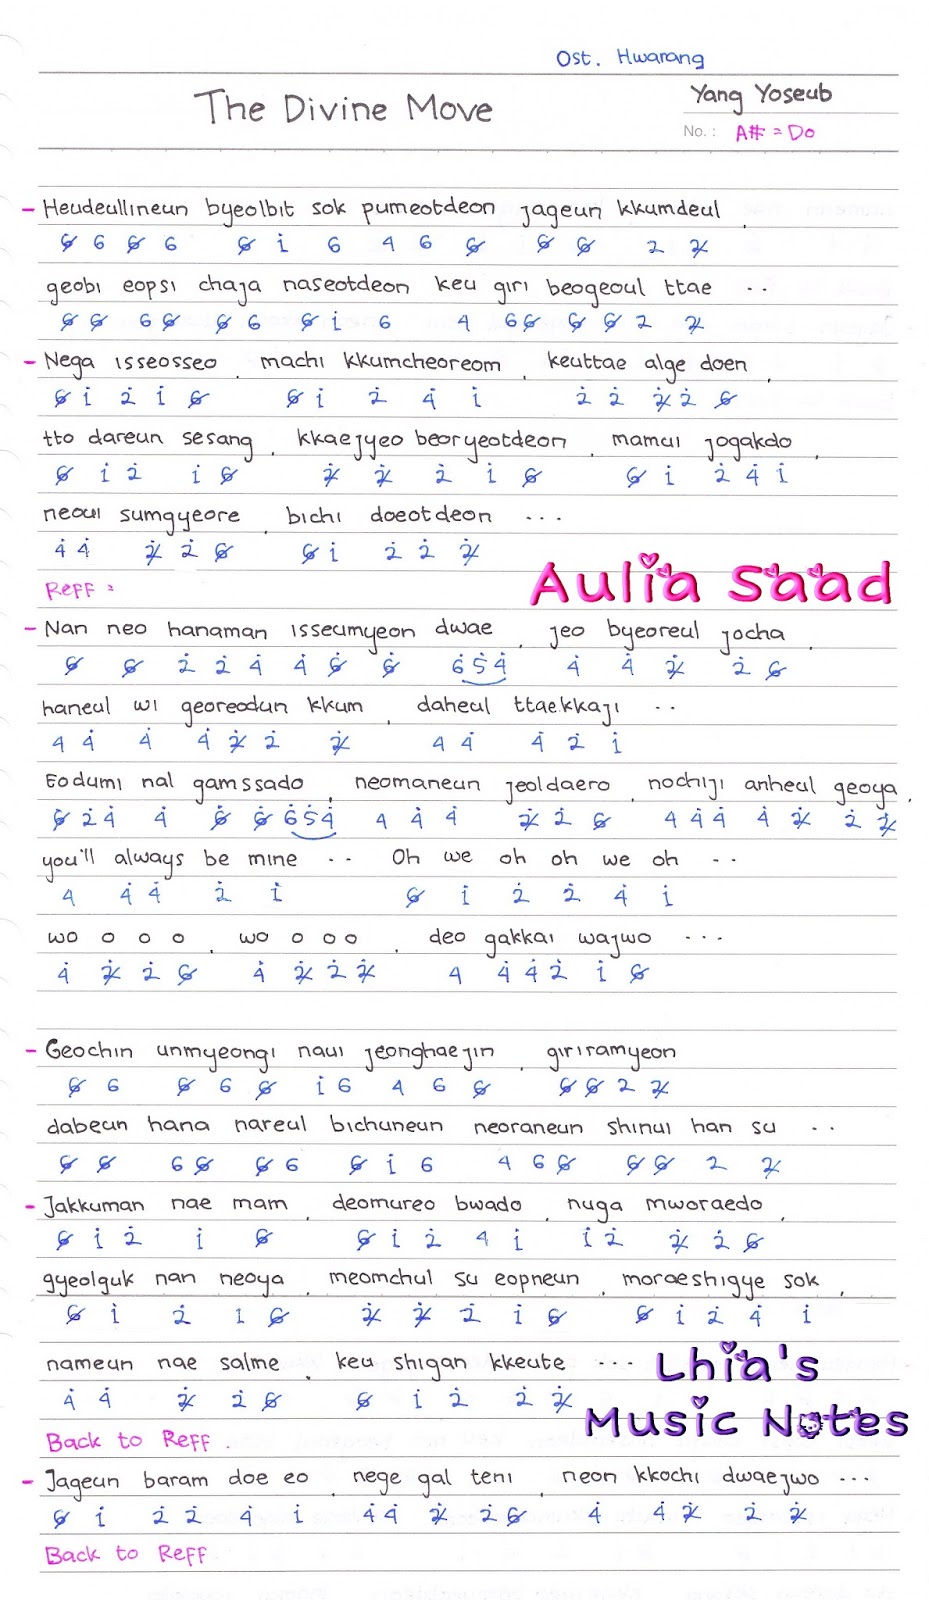 Ost. Hwarang
The Divine Move
Yang Yoseub
No. : A# = Do
- Heudeullineun byeolbit sok pumeotdeon jageun kkumdeul,
6̸ 6 6̸ 6 6̸ i 6 4 6 6̸ 6̸ 6̸ 2 2̸
geobi eopsi chaja naseotdeon keu giri beogeoul ttae ..
6̸ 6̸ 6 6̸ 6̸ 6 6̸ i 6 4 6 6̸ 6̸ 6̸ 2 2̸
- Nega isseosseo, machi kkumcheoreom, keuttae alge doen,
6̸ i 2̇ i 6̸ 6̸ i 2̇ 4̇ i 2̇ 2̇ 2̸̇ 2̇ 6̸
tto dareun sesang, kkaejyeo beoryeotdeon, mamui jogakdo,
6̸ i 2̇ i 6̸ 2̸̇ 2̸̇ 2̇ i 6̸ 6̸ i 2̇ 4̇ i
neoui sumgyeore, bichi doeotdeon ...
4̇ 4̇ 2̸̇ 2̇ 6̸ 6̸ i 2̇ 2̇ 2̸̇
Reff :
Aulia Saad
- Nan neo hanaman isseumyeon dwae, jeo byeoreul jocha
6̸ 6̸ 2̇ 2̇ 4̇ 4̇ 6̸̇ 6̸̇ 6̇ 5̇ 4̇ 4̇ 4̇ 2̸̇ 2̇ 6̸
haneul wi georeodun kkum, daheul ttaekkaji ..
4 4̇ 4̇ 4̇ 2̸̇ 2̇ 2̸̇ 4 4̇ 4̇ 2̇ i
Eodumi nal gamssado, neomaneun jeoldaero, nochiji anheul geoya,
6̸ 2̇ 4̇ 4̇ 6̸̇ 6̸̇ 6̇ 5̇ 4̇ 4 4̇ 4̇ 2̸̇ 2̇ 6̸ 4 4̇ 4̇ 4̇ 2̸̇ 2̇ 2̸̇
you'll always be mine .. Oh we oh oh we oh ..
4 4̇ 4̇ 2̇ i 6̸ i 2̇ 2̇ 4̇ i
wo o o o, wo o o o, deo gakkai wajwo ...
4̇ 2̸̇ 2̇ 6̸ 4̇ 2̸̇ 2̇ 2̸̇ 4 4̇ 4̇ 2̇ i 6̸
- Geochin unmyeongi naui jeonghaejin, giriramyeon
6̸ 6 6̸ 6 6̸ i 6 4 6 6̸ 6̸ 6̸ 2 2̸
dabeun hana nareul bichuneun neoraneun shinui han su ..
6̸ 6̸ 6 6̸ 6̸ 6 6̸ i 6 4 6 6̸ 6̸ 6̸ 2 2̸
- Jakkuman nae mam, deomureo bwado, nuga mworaedo,
6̸ i 2̇ i 6̸ 6̸ i 2̇ 4̇ i i 2̇ 2̸̇ 2̇ 6̸
gyeolguk nan neoya, meomchul su eopneun, moraeshigye sok,
6̸ i 2̇ 1 6̸ 2̸̇ 2̸̇ 2̇ i 6̸ 6̸ i 2̇ 4̇ i
nameun nae salme, keu shigan kkeute ...
4̇ 4̇ 2̸̇ 2̇ 6̸ 6̸ i 2̇ 2̇ 2̸̇
Lhia's
Music Notes
Back to Reff.
- Jageun baram doe eo, nege gal teni, neon kkochi dwaejwo ...
6̸ i 2̇ 2̇ 4̇ i 4̇ 4̇ 2̸̇ 2̇ 6̸ 4̇ 4̇ 2̸̇ 2̇ 2̸̇
Back to Reff